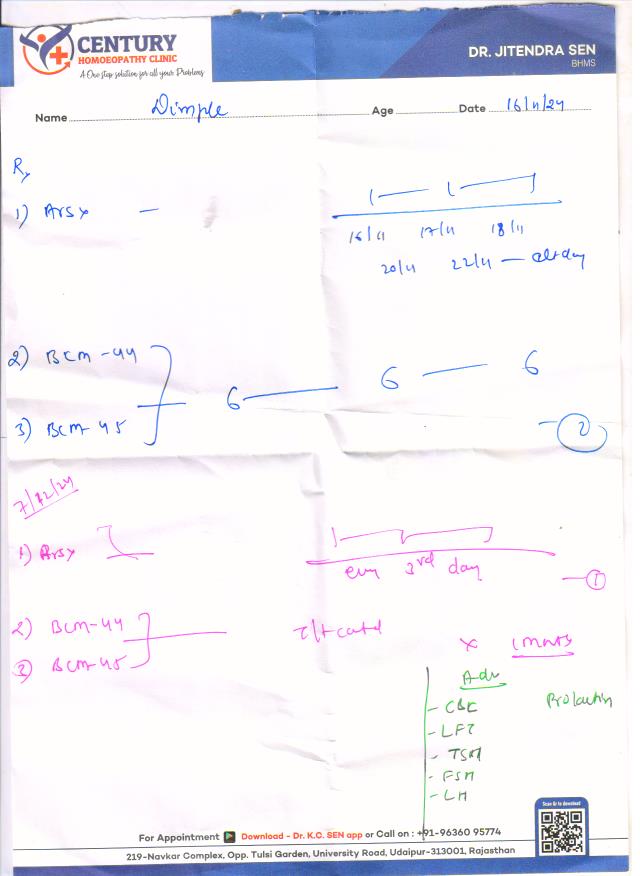 CENTURY
HOMOEOPATHY CLINIC
A One stop solution for all your Problems
DR. JITENDRA SEN
BHMS
Name Dimple Age Date 16/11/24
Rx
1) Arsx — 1 — 1 — 1
16/11 17/11 18/11
20/11 22/11 — alt day
2) BCM-44
6 — 6 — 6
3) BCM-45
— 2
7/12/24
1) Arsx
every 3rd day
— 1
2) BCM-44
3) BCM-45
x
Adv
- CBC Prolactin
- LFT
- TSH
- FSH
- LH
Scan Qr to download
For Appointment Download - Dr. K.C. SEN app or Call on : +91-96360 95774
219-Navkar Complex, Opp. Tulsi Garden, University Road, Udaipur-313001, Rajasthan